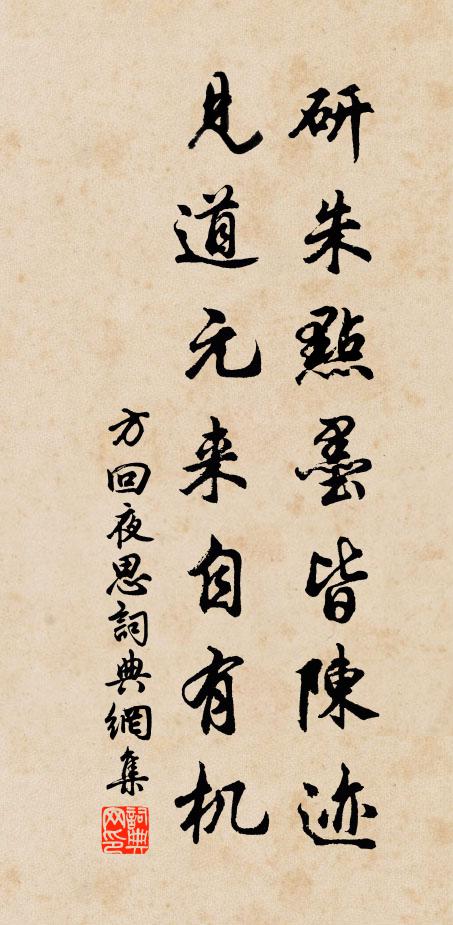 研朱點墨皆陳迹
見道元来自有机
方回夜思詞典網集
詞典網印